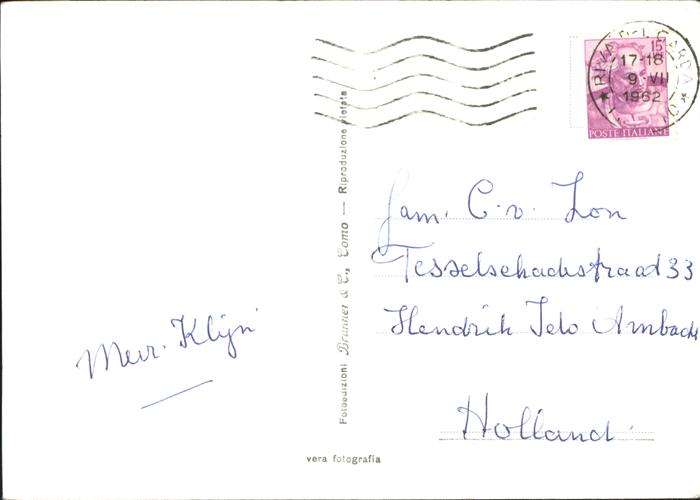 Mevr. Klijn
Fotoedizioni Brunner & C., Como — Riproduzione vietata
vera fotografia
RIVA DEL GARDA
17-18
9·VII
1962
15
POSTE ITALIANE
Fam. C. v. Zon
Tesselschadestraat 33
Hendrik Ido Ambacht
Holland.